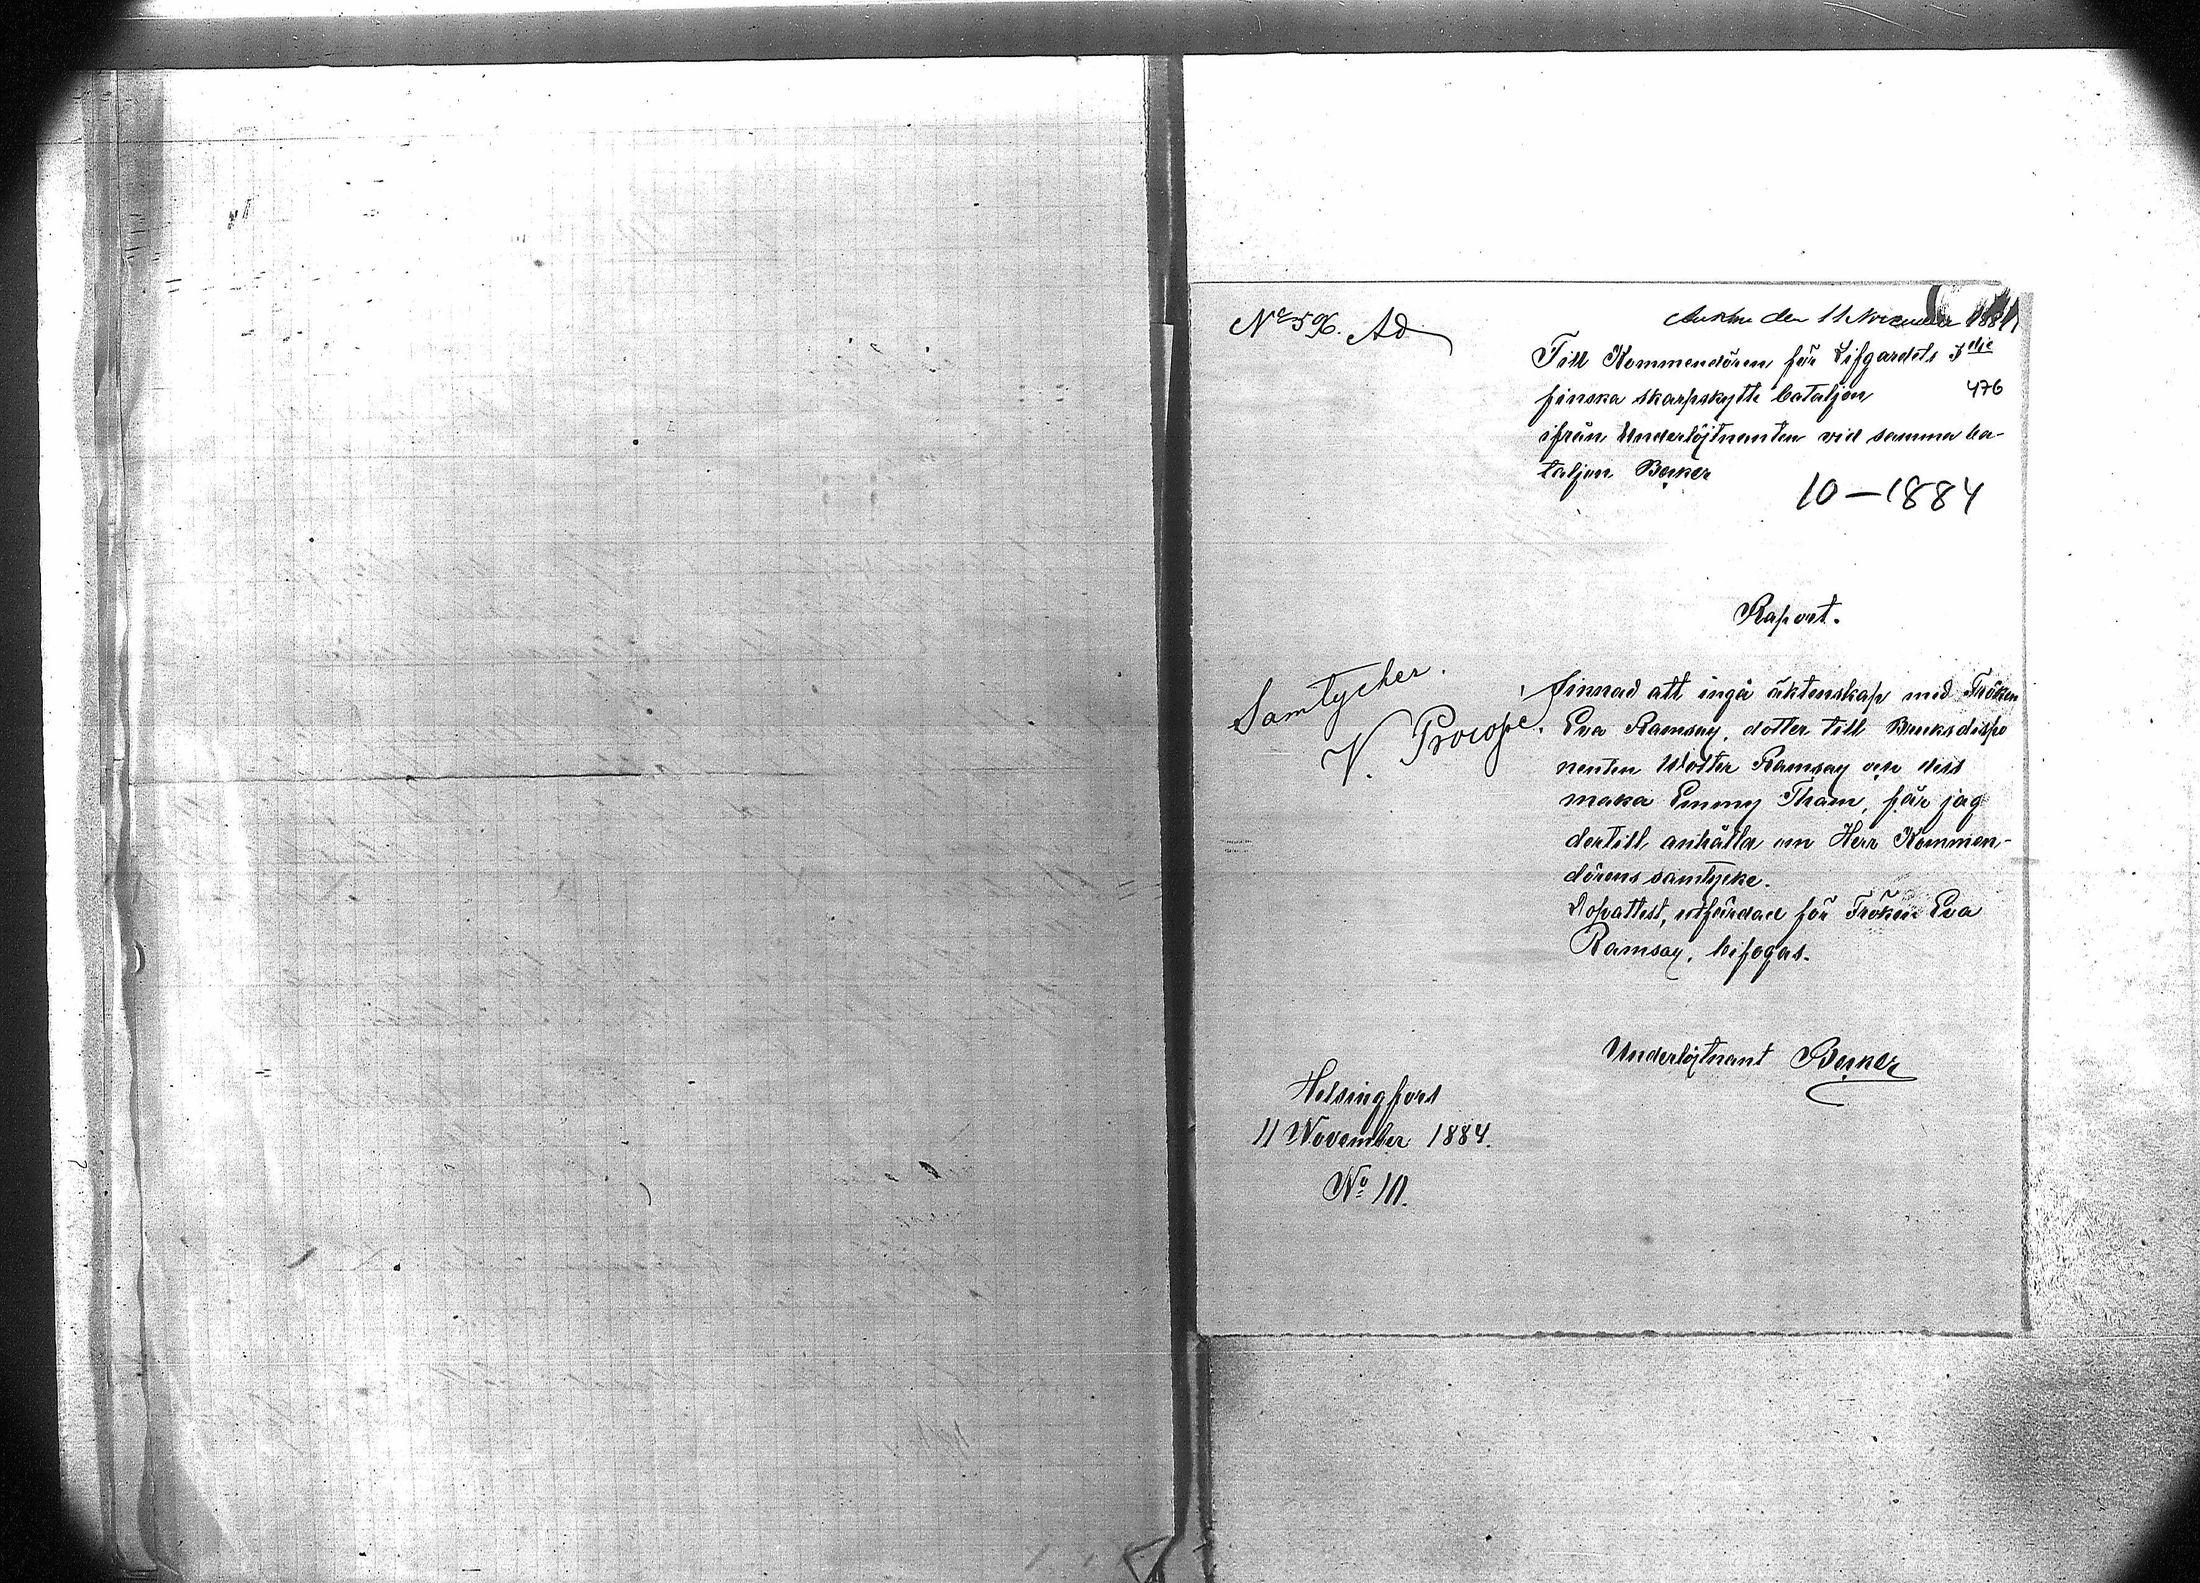 No 596. Ad
den 11 November 1884
Till Kommendören för Lifgardets 3dje
finska skarpskytte bataljon 476
ifrån Underlöjtnanten vid samma ba-
taljon Berner
10-1884
Raport.
Samtycker.
V. Procopé.
Sinnad att ingå äktenskap med Fröken
Eva Ramsay, dotter till Bruksdispo
nenten Wolter Ramsay och dess
maka Emmy Tham, får jag
dertill anhålla om Herr Kommen-
dörens samtycke.
Dopattest, utfärdad för Fröken Eva
Ramsay, bifogas.
Underlöjtnant Berner
Helsingfors
11 November 1884.
No 10.